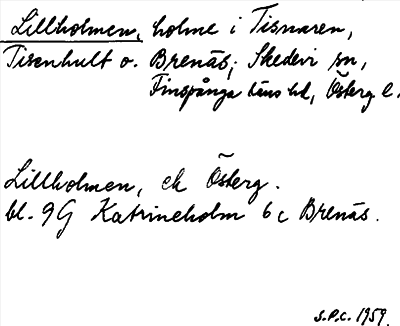 Lillholmen, holme i Tisnaren,
Tisenhult o. Brenäs; Skedevi sn,
Finspånga läns hd, Österg l.
Lillholmen, ek Österg.
bl. 9G Katrineholm 6c Brenäs.
S.P.C. 1959.